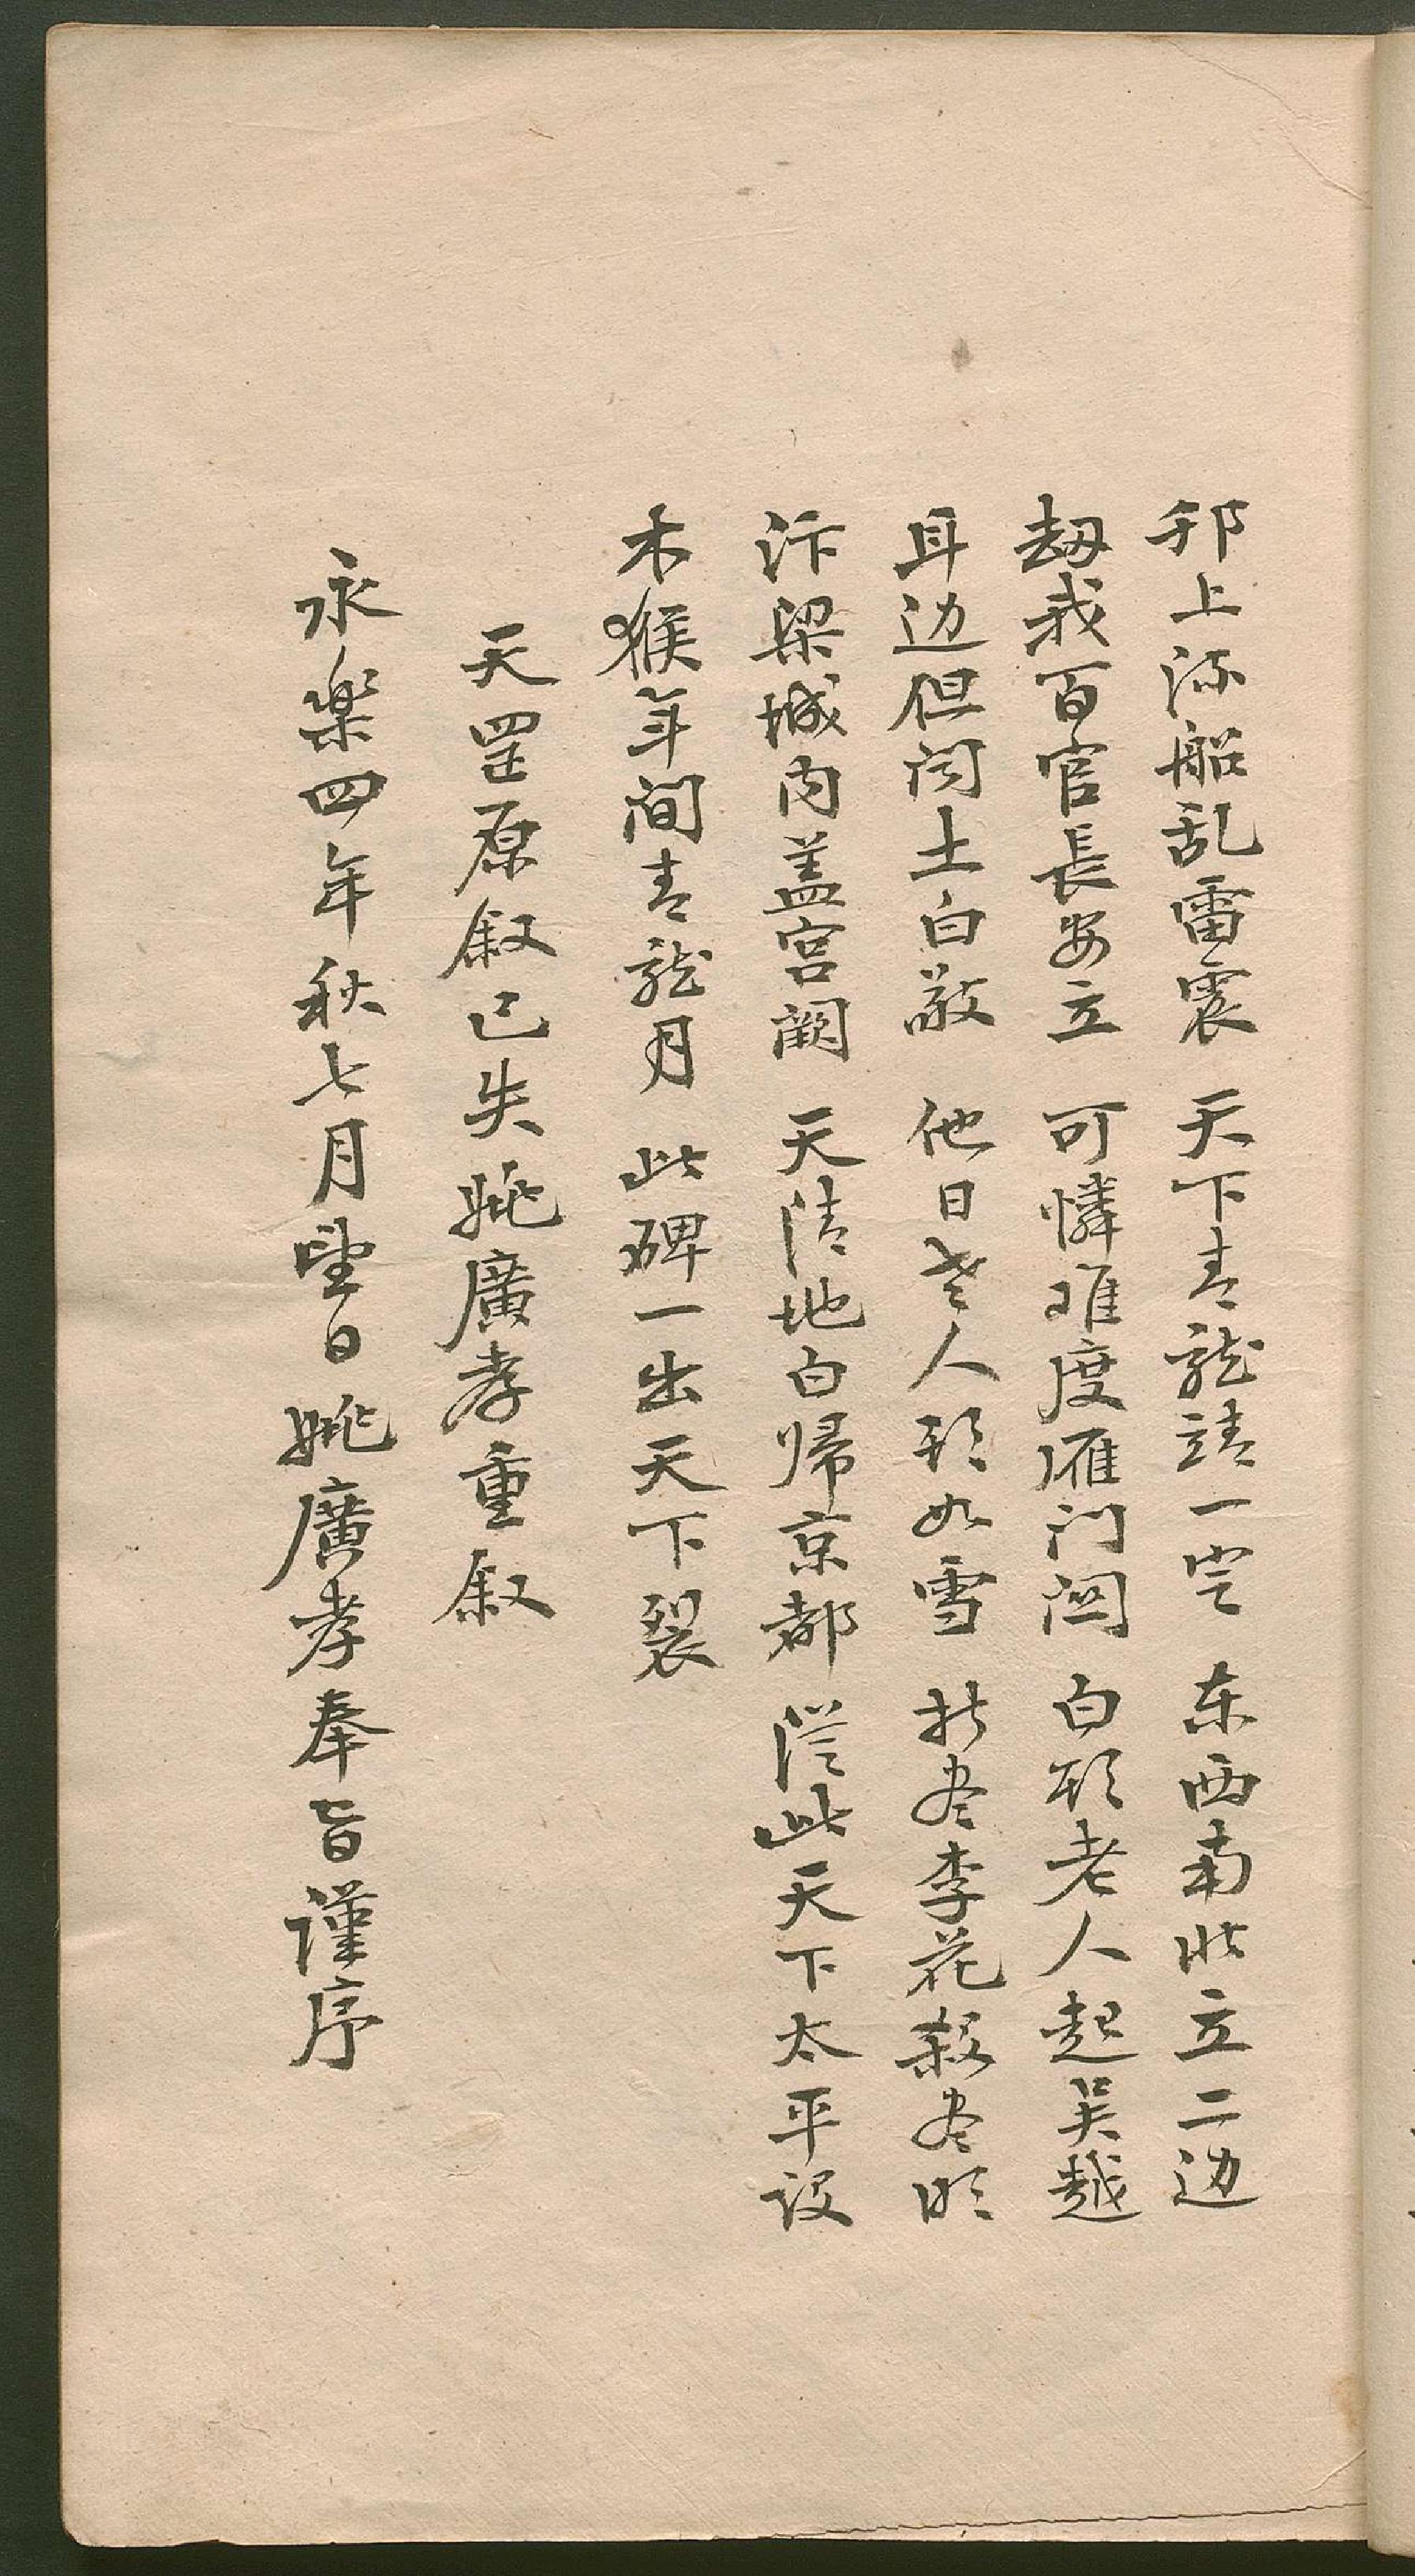 邗上流船乱雷震 天下青龍靖一空 东西南北立二边
劫我百官長安立 可憐难度雁门関 白头老人起吴越
耳边但闻土白敲 他日老人头如雪 折尽李花殺尽明
汴梁城内盖宫阙 天清地白帰京都 從此天下太平设
木猴年间青龍月 此碑一出天下裂
天罡原叙已失姚廣孝重叙
永樂四年秋七月望日姚廣孝奉旨谨序